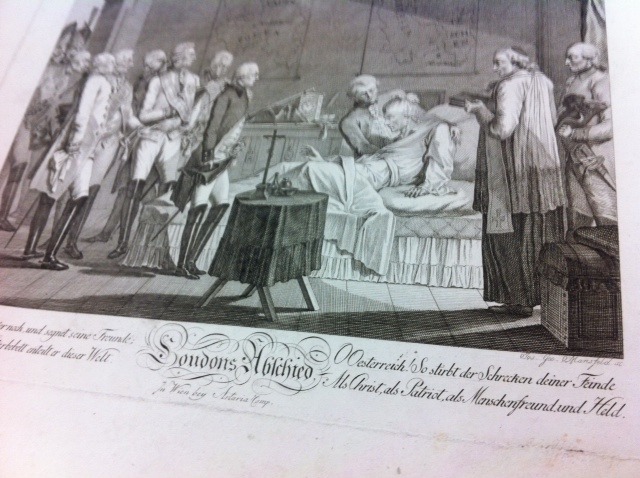 nach, und segnet seine Freunde;
er dieser Welt
Loudons Abschied
In Wien bey Artaria Comp.
O Oesterreich! So stirbt der Schrecken deiner Feinde
Als Christ, als Patriot, als Menschenfreund, und Held.
Jos. Go. Mansfeld sc.